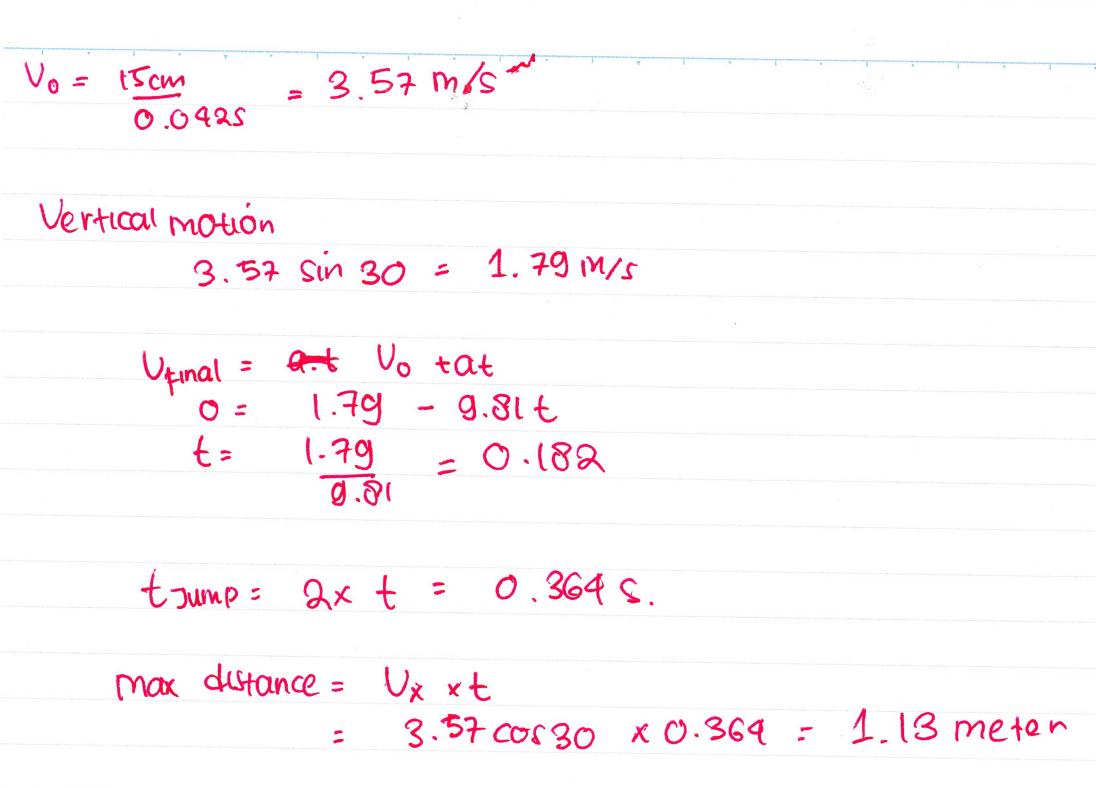 V₀ = 15cm / 0.042s = 3.57 m/s
Vertical motion
3.57 sin 30 = 1.79 m/s
Vfinal = a.t V₀ + at
0 = 1.79 - 9.81 t
t = 1.79 / 9.81 = 0.182
t Jump = 2x t = 0.364 s.
max distance = Vx x t
= 3.57 cos 30 x 0.364 = 1.13 meter